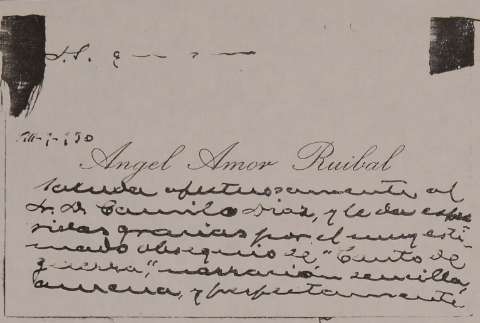 Angel Amor Ruibal
saluda afectuosamente al
Sr. D. Camilo Diaz, y le da expre
sivas gracias por el muy esti-
mado obsequio de "Canto de
guerra", narración sencilla,
amena, y perfectamente